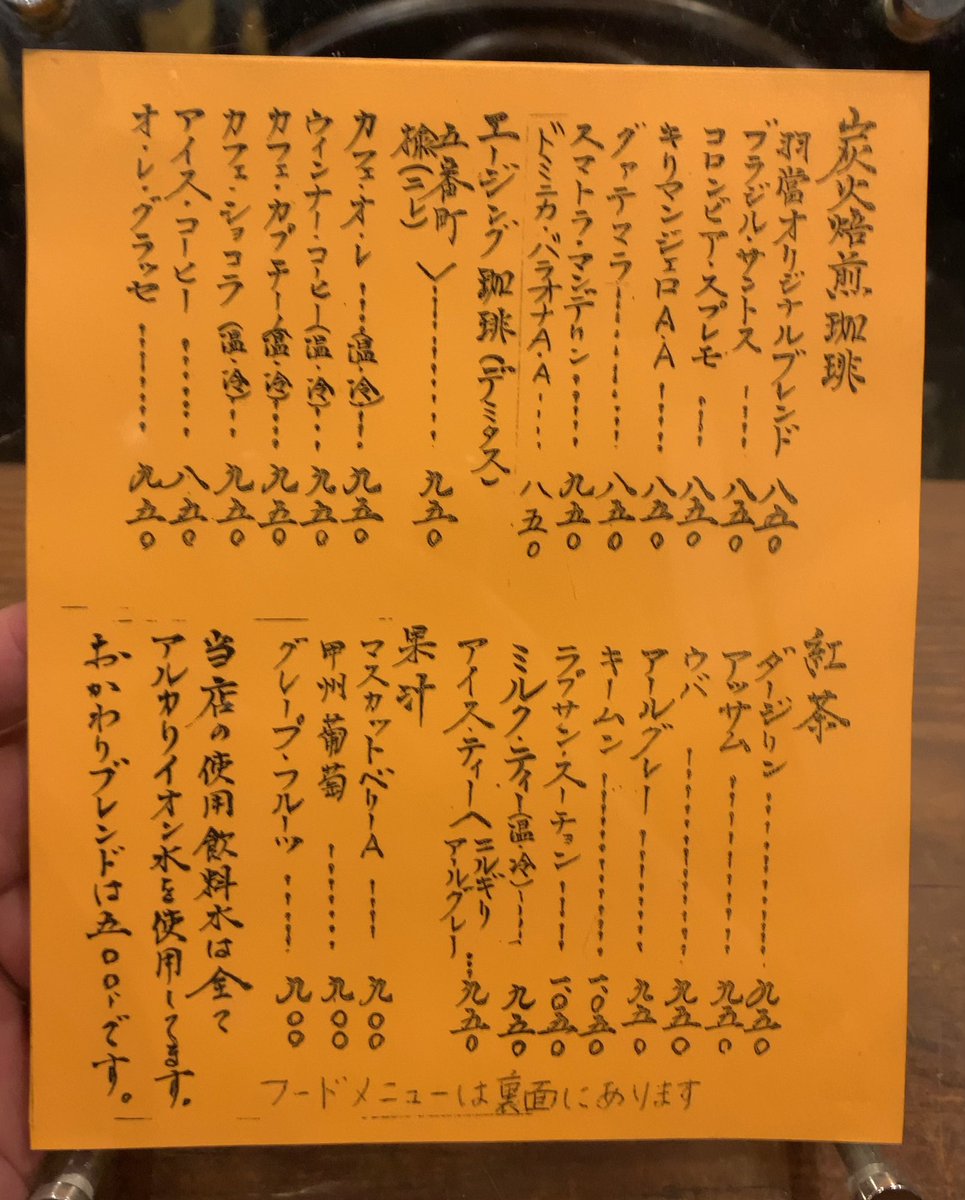 炭火焙煎珈琲
羽當オリジナルブレンド 八五〇
ブラジル・サントス………八五〇
コロンビア・スプレモ………八五〇
キリマンジェロA・A………八五〇
グァテマラ………八五〇
スマトラ・マンデリン………九五〇
ドミニカ・バラオナA・A………八五〇
エージング珈琲(デミタス)
五番町
………九五〇
カフェ・オ・レ………(温・冷)………九五〇
ウィンナー・コーヒー(温・冷)………九五〇
カフェ・カプチーノ(温・冷)………九五〇
カフェ・ショコラ(温・冷)………九五〇
アイス・コーヒー………八五〇
オ・レ・グラッセ………九五〇
紅茶
ダージリン………九五〇
アッサム………九五〇
ウバ………九五〇
アールグレー………九五〇
キームン………一、〇五〇
ラプサン・スーチョン………一、〇五〇
ミルク・ティー(温・冷)………九五〇
アイス・ティーヘ ニルギリ
アールグレー………九五〇
果汁
マスカットベリーA………九〇〇
甲州葡萄………九〇〇
グレープ・フルーツ………九〇〇
当店の使用飲料水は全て
アルカリイオン水を使用してます。
おかわりブレンドは五〇〇、です。
フードメニューは裏面にあります